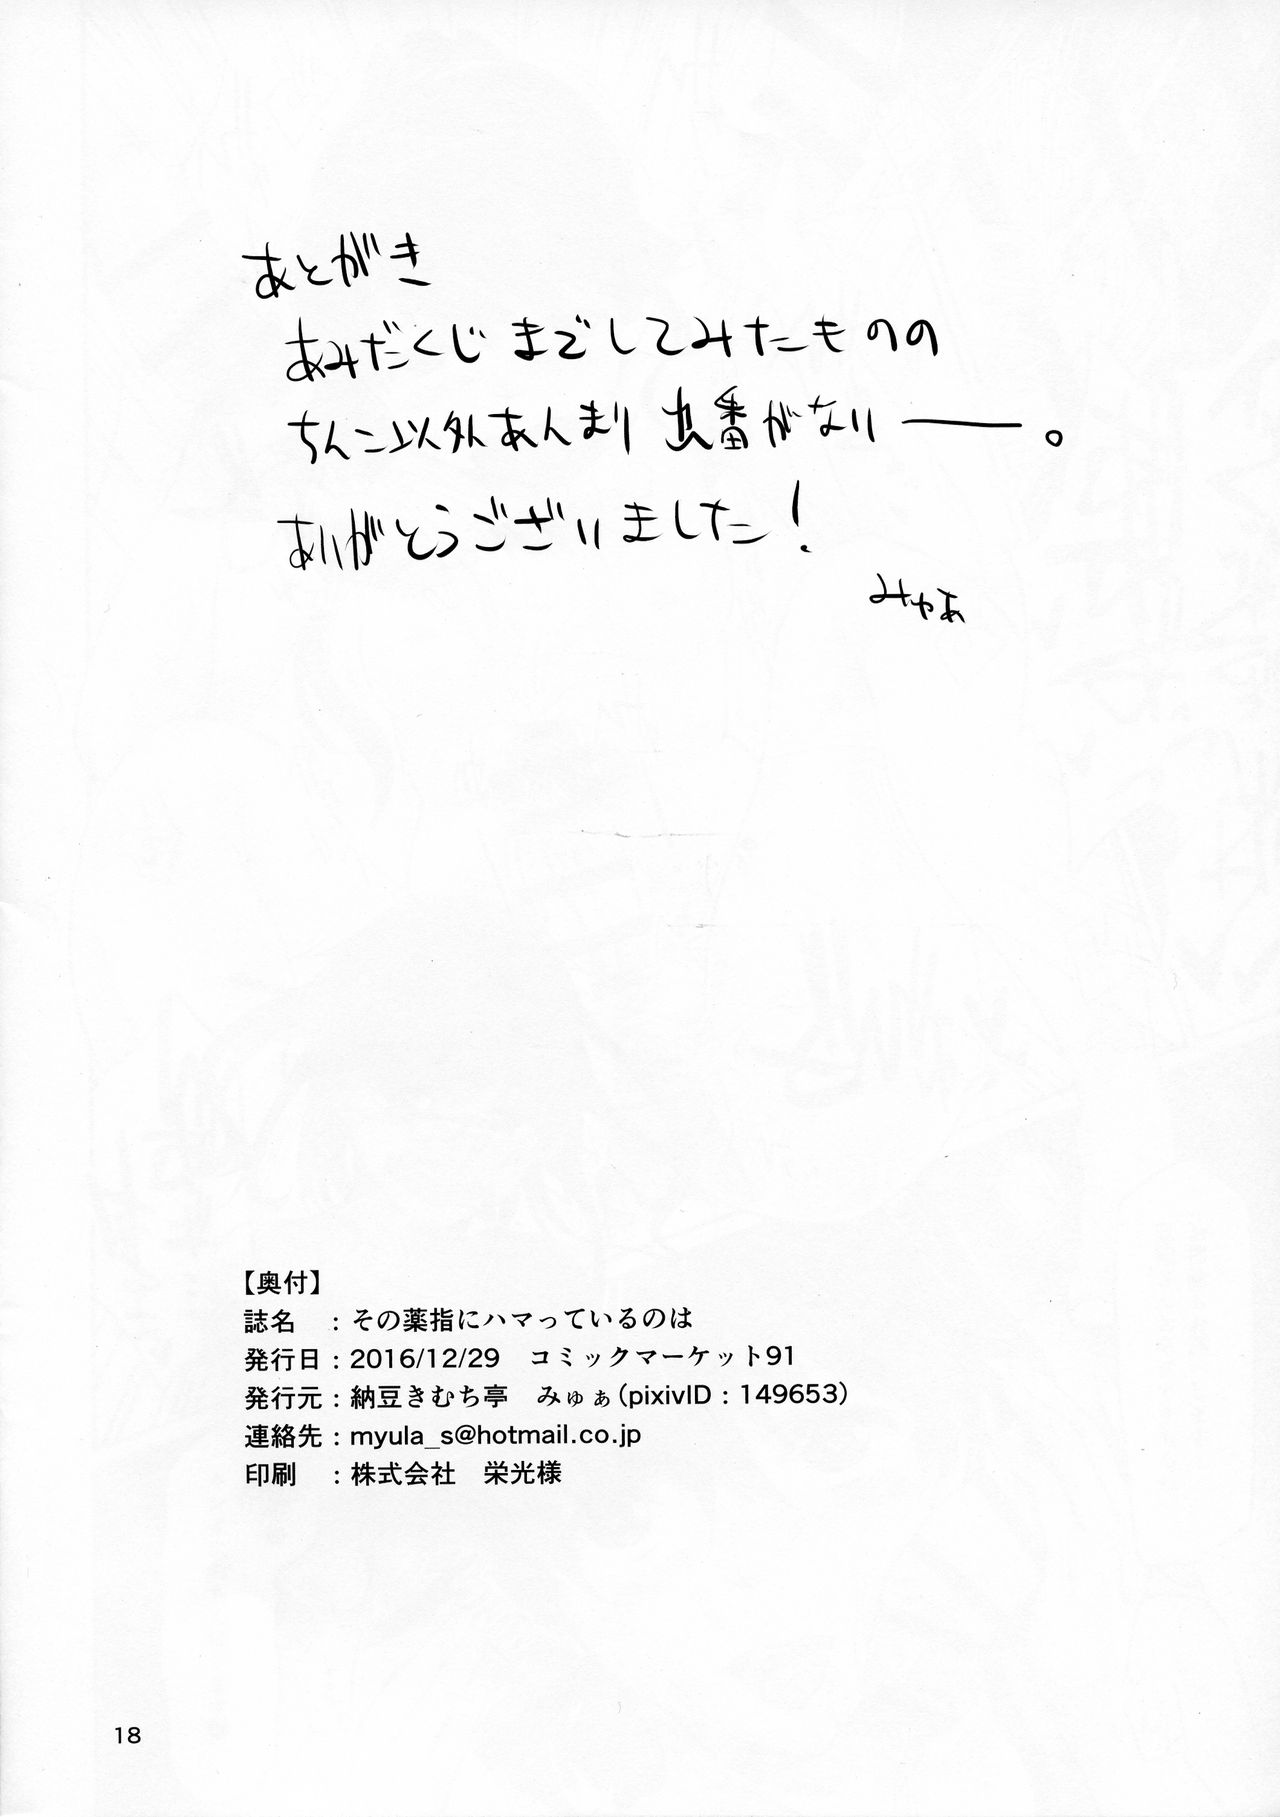 あとがき
あみだくじまでしてみたものの
ちんこ以外あんまり出番がないー。
ありがとうございました！
みゅぁ
【奥付】
誌名　：その薬指にハマっているのは
発行日：2016/12/29　コミックマーケット91
発行元：納豆きむち亭　みゅぁ(pixivID：149653)
連絡先：myula_s@hotmail.co.jp
印刷　：株式会社　栄光様
18